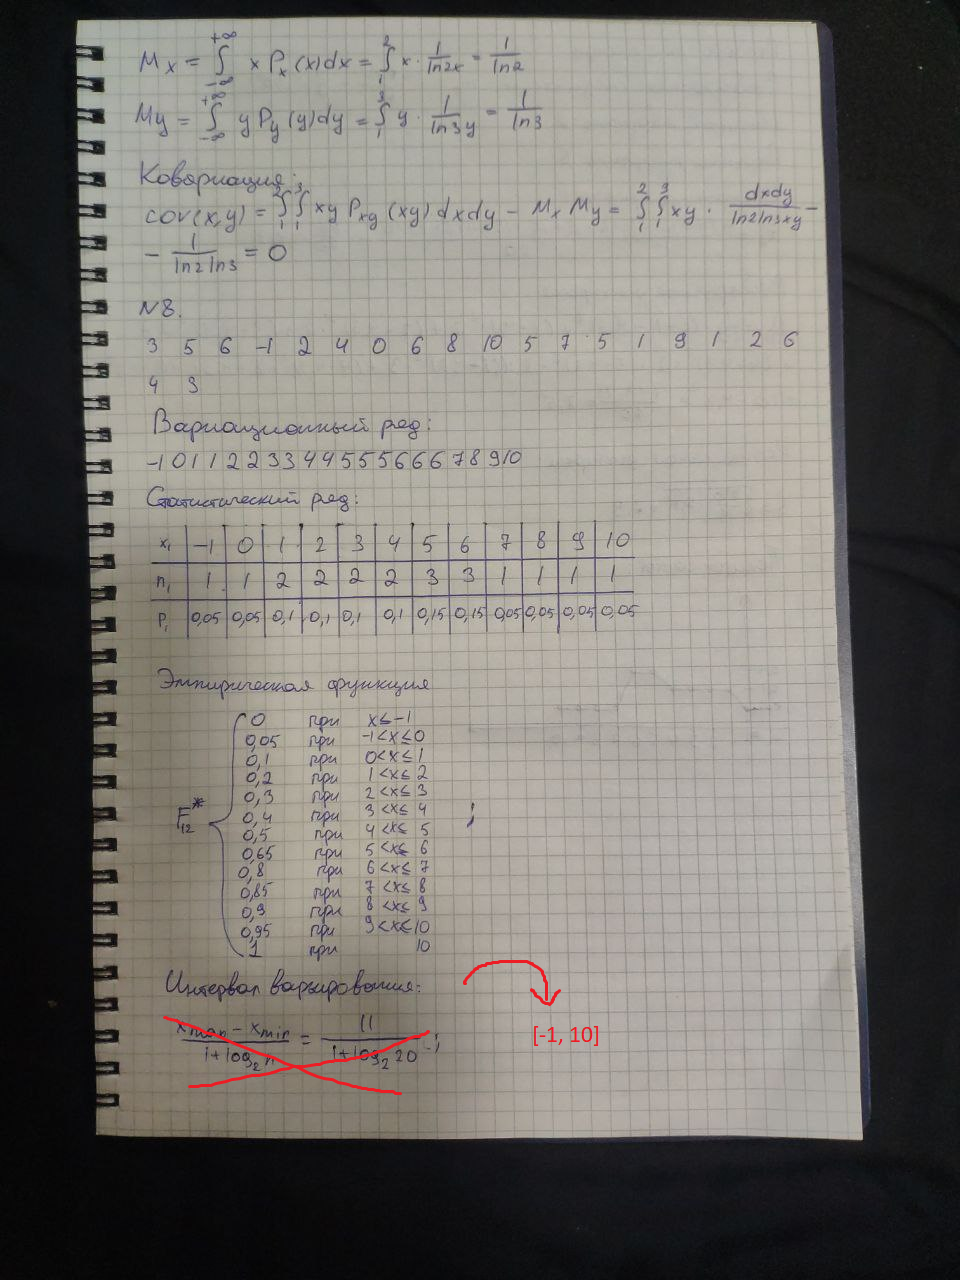 Mx = ∫_{-∞}^{+∞} x Px (x)dx = ∫_1^2 x · 1/ln2x = 1/ln2
My = ∫_{-∞}^{+∞} y Py (y)dy = ∫_1^3 y · 1/ln3y = 1/ln3
Ковариация:
cov(x,y) = ∫_1^2 ∫_1^3 xy Pxy (xy) dxdy - Mx My = ∫_1^2 ∫_1^3 xy · dxdy/ln2ln3xy -
- 1/ln2ln3 = 0
N8.
3 5 6 -1 2 4 0 6 8 10 5 7 5 1 9 1 2 6
4 3
Вариационный ряд:
-1 0 1 1 2 2 3 3 4 4 5 5 5 6 6 6 7 8 9 10
Статистический ряд:
xi -1 0 1 2 3 4 5 6 7 8 9 10
ni 1 1 2 2 2 2 3 3 1 1 1 1
Pi 0,05 0,05 0,1 0,1 0,1 0,1 0,15 0,15 0,05 0,05 0,05 0,05
Эмпирическая функция
0 при x≤-1
0,05 при -1<x≤0
0,1 при 0<x≤1
0,2 при 1<x≤2
0,3 при 2<x≤3
F*12 0,4 при 3<x≤4 ;
0,5 при 4<x≤5
0,65 при 5<x≤6
0,8 при 6<x≤7
0,85 при 7<x≤8
0,9 при 8<x≤9
0,95 при 9<x≤10
1 при 10
Интервал варьирования:
xmax - xmin / 1+log2 n = 11 / 1+log2 20 ;
[-1, 10]